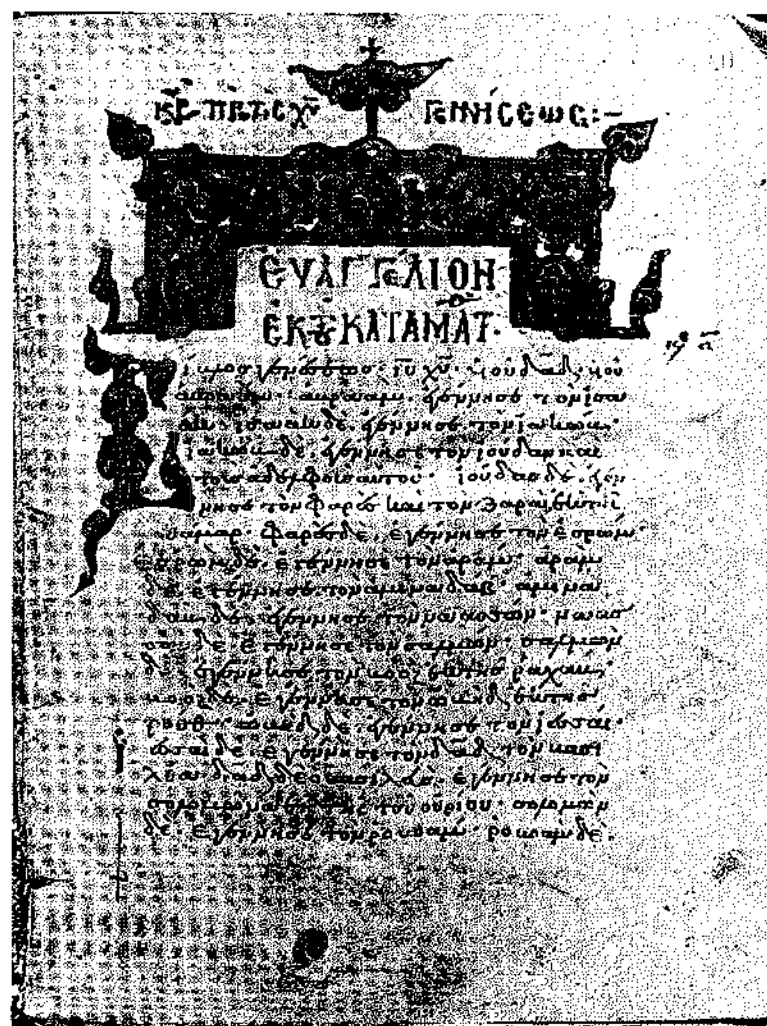 ΚΥ ΠΡ ΤΗС ΧΥ ΓΕΝΝΗСΕΩС:–
ΕΥΑΓΓΕΛΙΟΝ
ΕΚ ΤΟΥ ΚΑΤΑ ΜΑΤ·
Βίβλος γενέσεως· ιυ χυ· υιοῦ δαδ· υιοῦ
αβραάμ· αβραὰμ. ἐγέννησε τὸν ἰσα
ακ· ισαακ δε. ἐγέννησε τὸν ἰακώβ·
ἰακὼβ δὲ. ἐγέννησε τὸν ἰούδαν και
τοὺς ἀδελφοὺς αυτοῦ· ἰούδας δὲ. ἐγέν
νησε τὸν Φαρὲς καὶ τὸν Ζαρὰ ἐκ τῆς
θάμαρ· Φαρὲς δὲ. ἐγέννησε τὸν ἐσρώμ·
Εσρὼμ δὲ. ἐγέννησε τὸν αράμ· ἀρὰμ
δὲ. ἐγέννησε. τὸν αμιναδαβ· αμινα
δαβ δὲ. ἐγέννησε. τὸν ναασσών· ναασ
σων δὲ ἐγέννησε τὸν σαλμών· σαλμὼν
δὲ ἐγέννησε. τὸν βοὸζ ἐκ τῆς ραχάβ·
βοὸζ δὲ. ἐγέννησε τὸν ὠβὴδ ἐκ τῆς
ρούθ· ὠβὴδ δὲ. ἐγέννησε τὸν ἰεσσαί·
ἰεσσαὶ δὲ. ἐγέννησε τὸν δαδ τὸν βασι
λέα· δαδ δὲ ὁ βασιλεὺς. ἐγέννησε τὸν
σολομῶντα ἐκ τῆς τοῦ οὐρίου· σολομὼν
δὲ. ἐγέννησε τὸν ροβοάμ· ῥοβοὰμ δὲ.